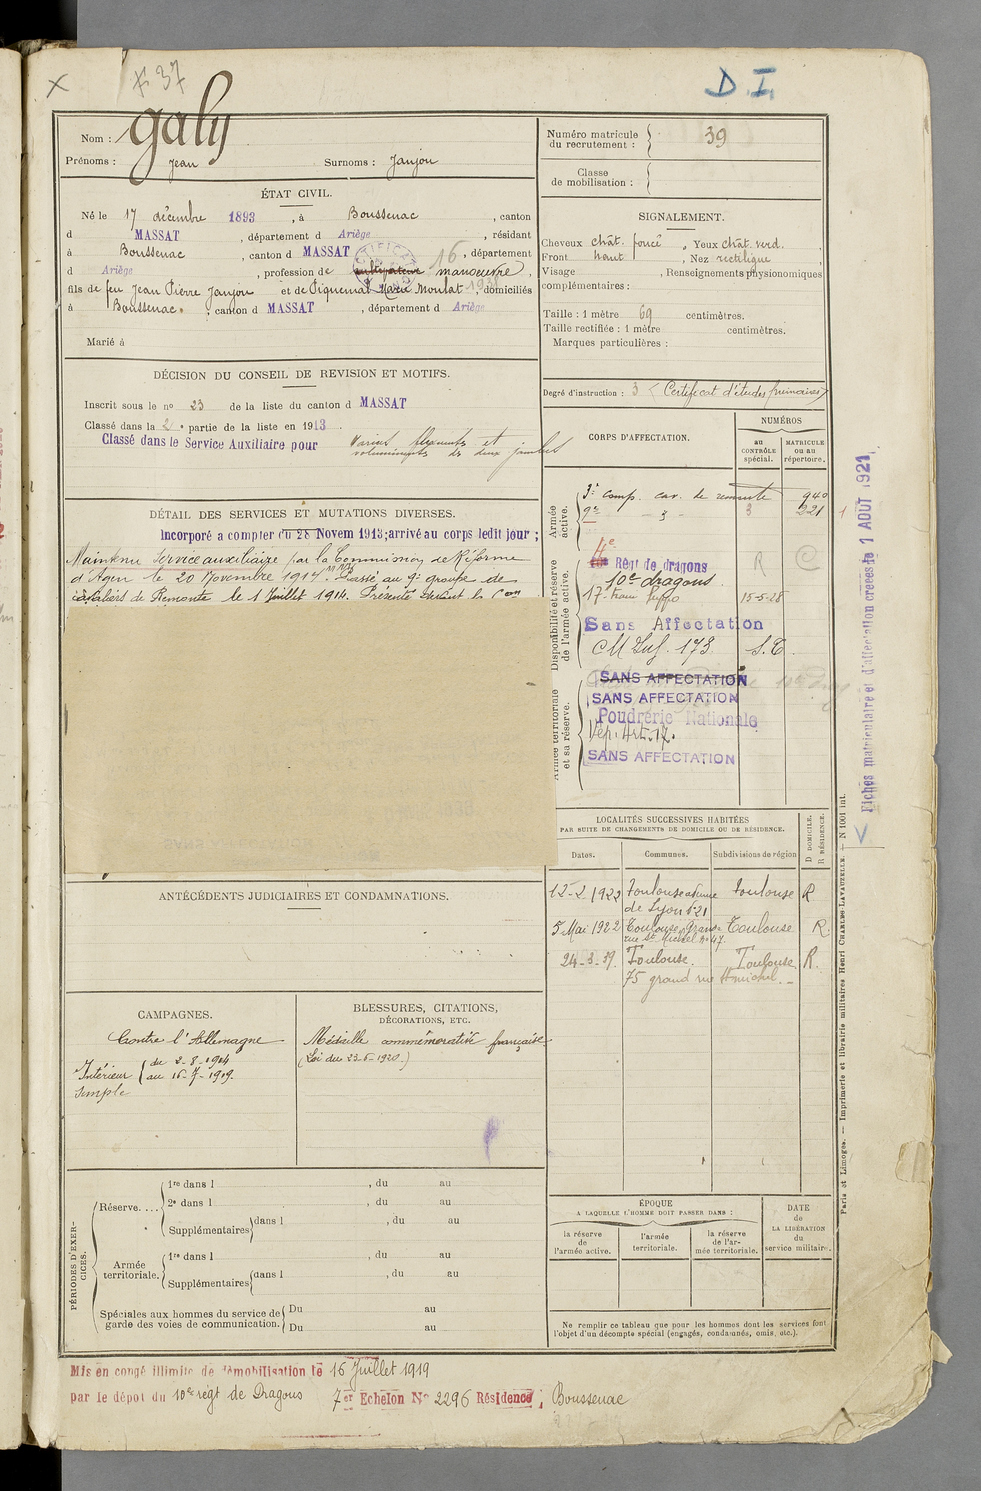 x F 37
D. I.
Nom : Galy
Prénoms : Jean Surnoms : Janjou
Numéro matricule du recrutement : 39
Classe de mobilisation :
ÉTAT CIVIL.
Né le 17 décembre 1893, à Boussenac, canton
d MASSAT, département d Ariège, résidant
à Boussenac, canton d MASSAT, département
d Ariège, profession de cultivateur manoeuvre,
fils de feu Jean Pierre Janjou et de Piquemal Marie Moulat, domiciliés
à Boussenac, canton d MASSAT, département d Ariège
Marié à
SIGNALEMENT.
Cheveux chât. foncé, Yeux chât. verd.
Front haut, Nez rectiligne
Visage , Renseignements physionomiques
complémentaires :
Taille : 1 mètre 69 centimètres.
Taille rectifiée : 1 mètre centimètres.
Marques particulières :
Degré d'instruction : 3 (Certificat d'études primaires)
DÉCISION DU CONSEIL DE REVISION ET MOTIFS.
Inscrit sous le no 23 de la liste du canton d MASSAT
Classé dans la 2e partie de la liste en 1913
Classé dans le Service Auxiliaire pour Varices et
volumineuses des deux jambes
DÉTAIL DES SERVICES ET MUTATIONS DIVERSES.
Incorporé a compter du 28 Novem 1913; arrivé au corps ledit jour;
Maintenu Service auxiliaire par la Commission de Réforme
d'Agen le 20 Novembre 1914. Passé au 9e groupe de
cavaliers de Remonte le 1 Juillet 1914. Présenté devant la Con
CORPS D'AFFECTATION.
NUMÉROS
au CONTRÔLE spécial.
MATRICULE ou au répertoire.
Armée active.
3e comp. cav. de remonte 940
9e - 3 - 3 221
Disponibilité et réserve de l'armée active.
Régt de dragons R C
10e dragons
17e 15-5-28
Sans Affectation
173
Armée territoriale et sa réserve.
SANS AFFECTATION
SANS AFFECTATION
Poudrerie Nationale
Dép. Art. 17.
SANS AFFECTATION
Fiches matriculaire et d'affectation créées le 1 AOUT 1921
LOCALITÉS SUCCESSIVES HABITÉES
PAR SUITE DE CHANGEMENTS DE DOMICILE OU DE RÉSIDENCE.
Dates. Communes. Subdivisions de région
D DOMICILE. R RÉSIDENCE.
12-2 1922 Toulouse avenue Toulouse R
de Lyon no 21
5 Mai 1922 Toulouse, Grande Toulouse R.
rue St Michel no 47
24-3-37. Toulouse. Toulouse R.
75 grand rue St michel.
ANTÉCÉDENTS JUDICIAIRES ET CONDAMNATIONS.
CAMPAGNES.
Contre l'Allemagne
Intérieur du 2-8-1914
simple au 16-7-1919.
BLESSURES, CITATIONS,
DÉCORATIONS, ETC.
Médaille commémorative française
(Loi du 23-6-1920.)
PÉRIODES D'EXERCICES.
Réserve....
1re dans l , du au
2e dans l , du au
Supplémentaires dans l , du au
Armée territoriale.
1re dans l , du au
Supplémentaires dans l , du au
Spéciales aux hommes du service de garde des voies de communication.
Du au
Du au
ÉPOQUE
A LAQUELLE L'HOMME DOIT PASSER DANS :
la réserve de l'armée active.
l'armée territoriale.
la réserve de l'armée territoriale.
DATE de LA LIBÉRATION du service militaire.
Ne remplir ce tableau que pour les hommes dont les services font
l'objet d'un décompte spécial (engagés, condamnés, omis, etc.).
Paris et Limoges. — Imprimerie et librairie militaires Henri CHARLES-LAVAUZELLE. — N 1001 int.
Mis en congé illimité de démobilisation le 16 Juillet 1919
par le dépôt du 10e régt de Dragons 7er Echelon No 2296 Résidence ; Boussenac